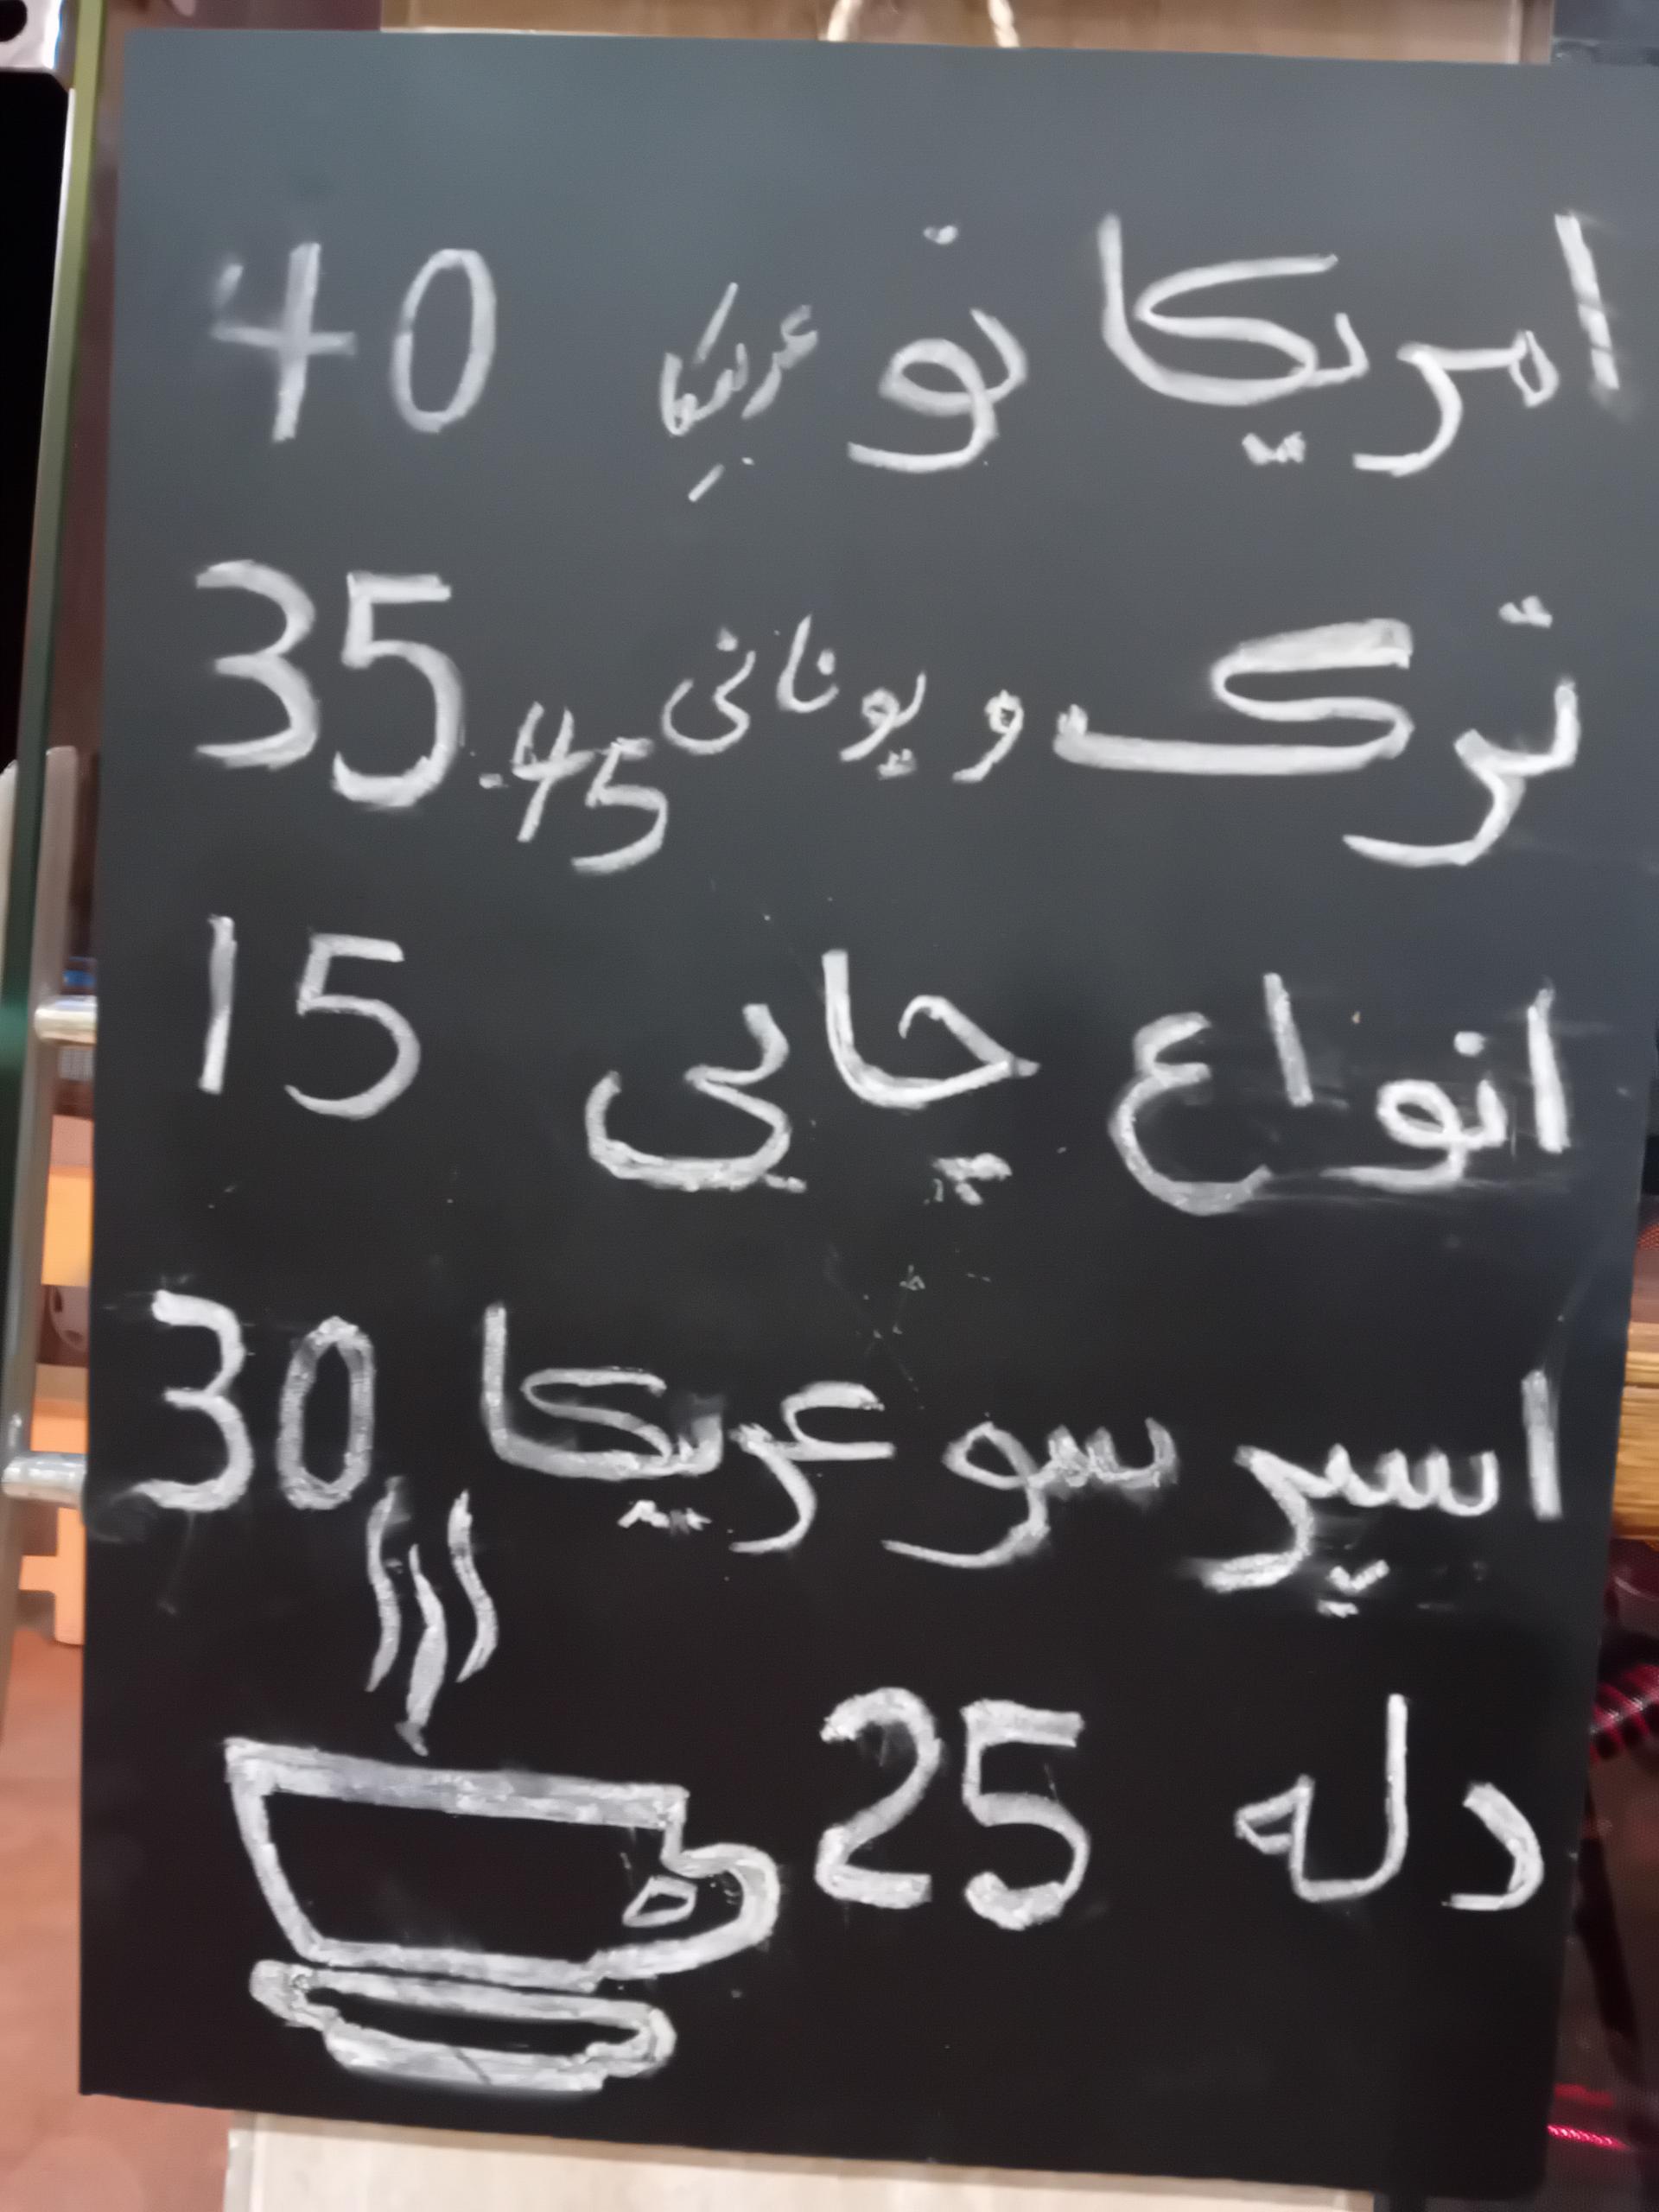 امریکا نو عریکا 40
ترک و یونانی 35.45
انواع چایی 15
اسپر سو عریکا 30
دله 25